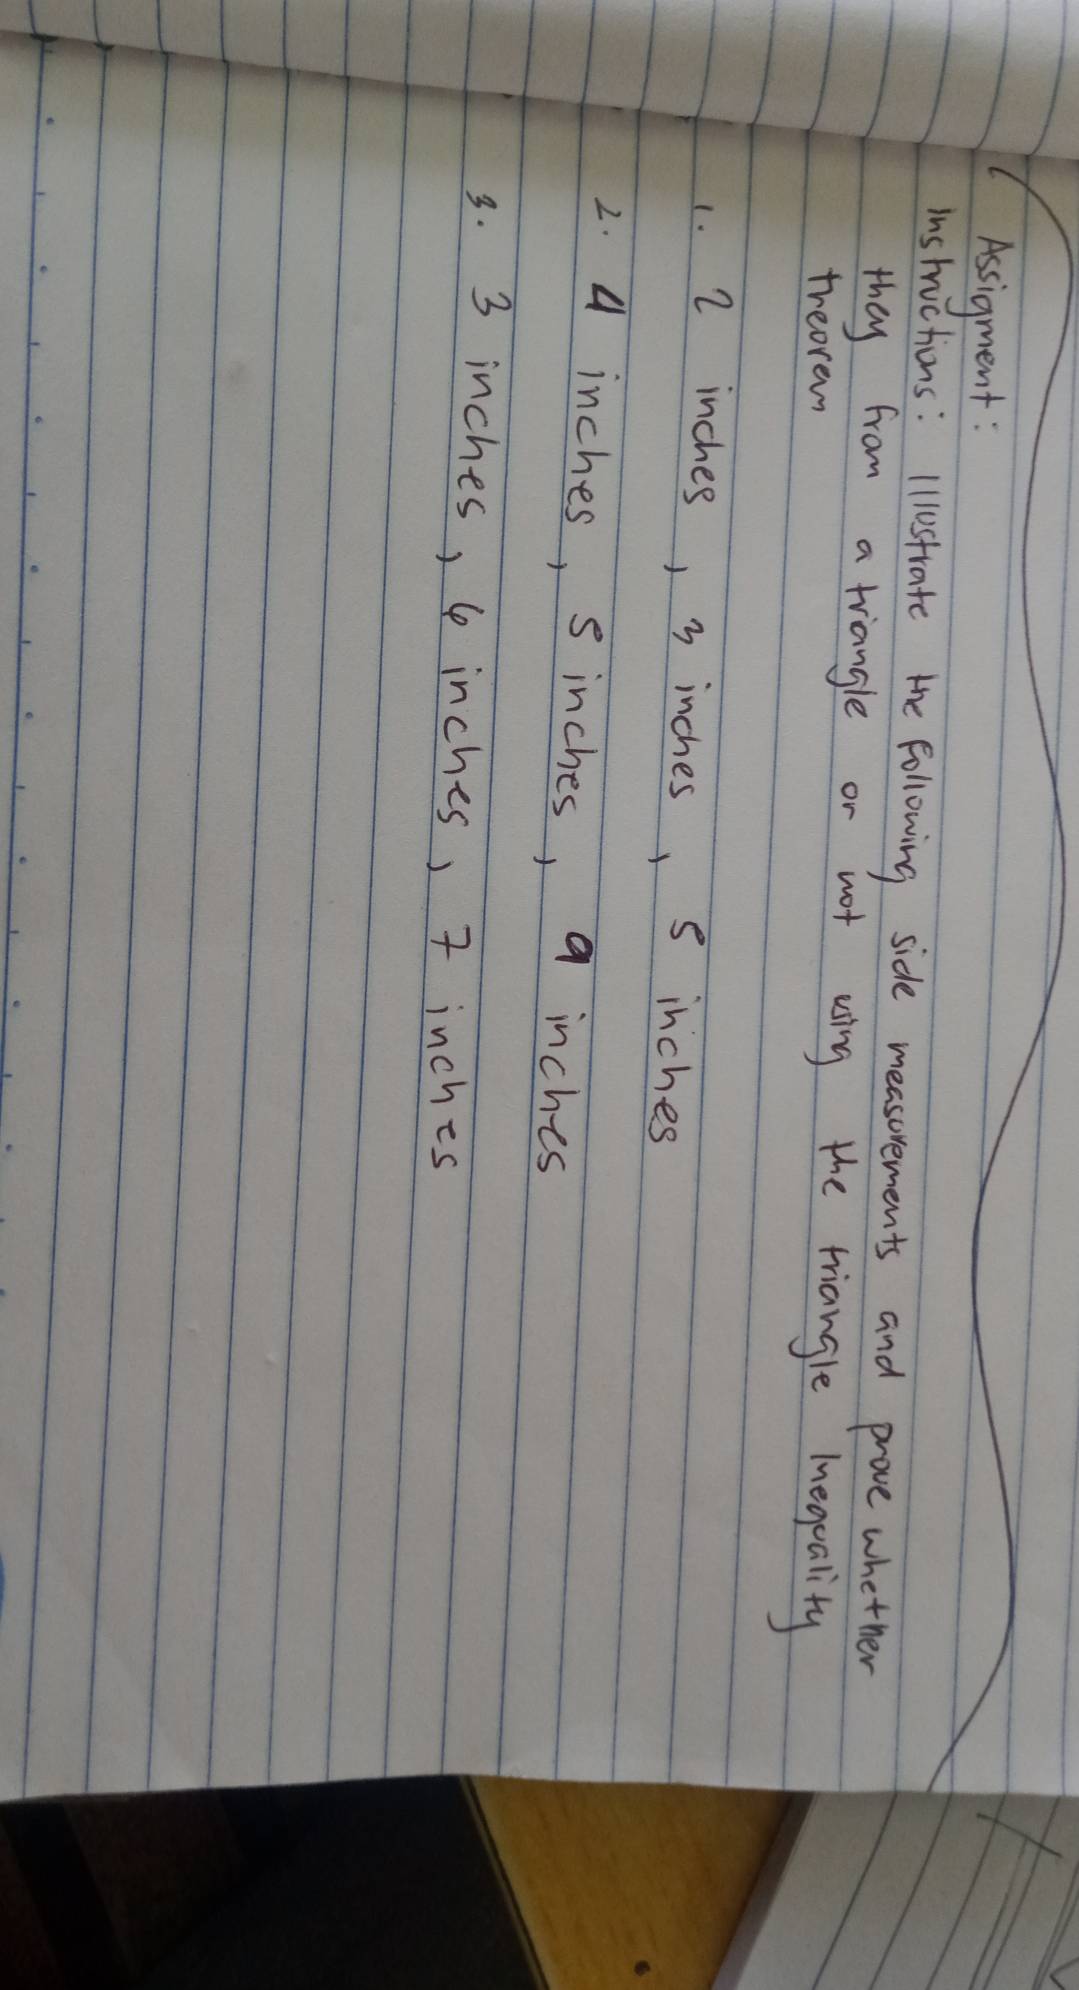 Assigment:
instructions: Illustrate the following side measurements and prove whether
they from a triangle or not using the triangle Inequality
theorem
1. 2 inches, 3 inches, 5 inches
2. 4 inches, 5 inches, 9 inches
3. 3 inches, 6 inches, 7 inches